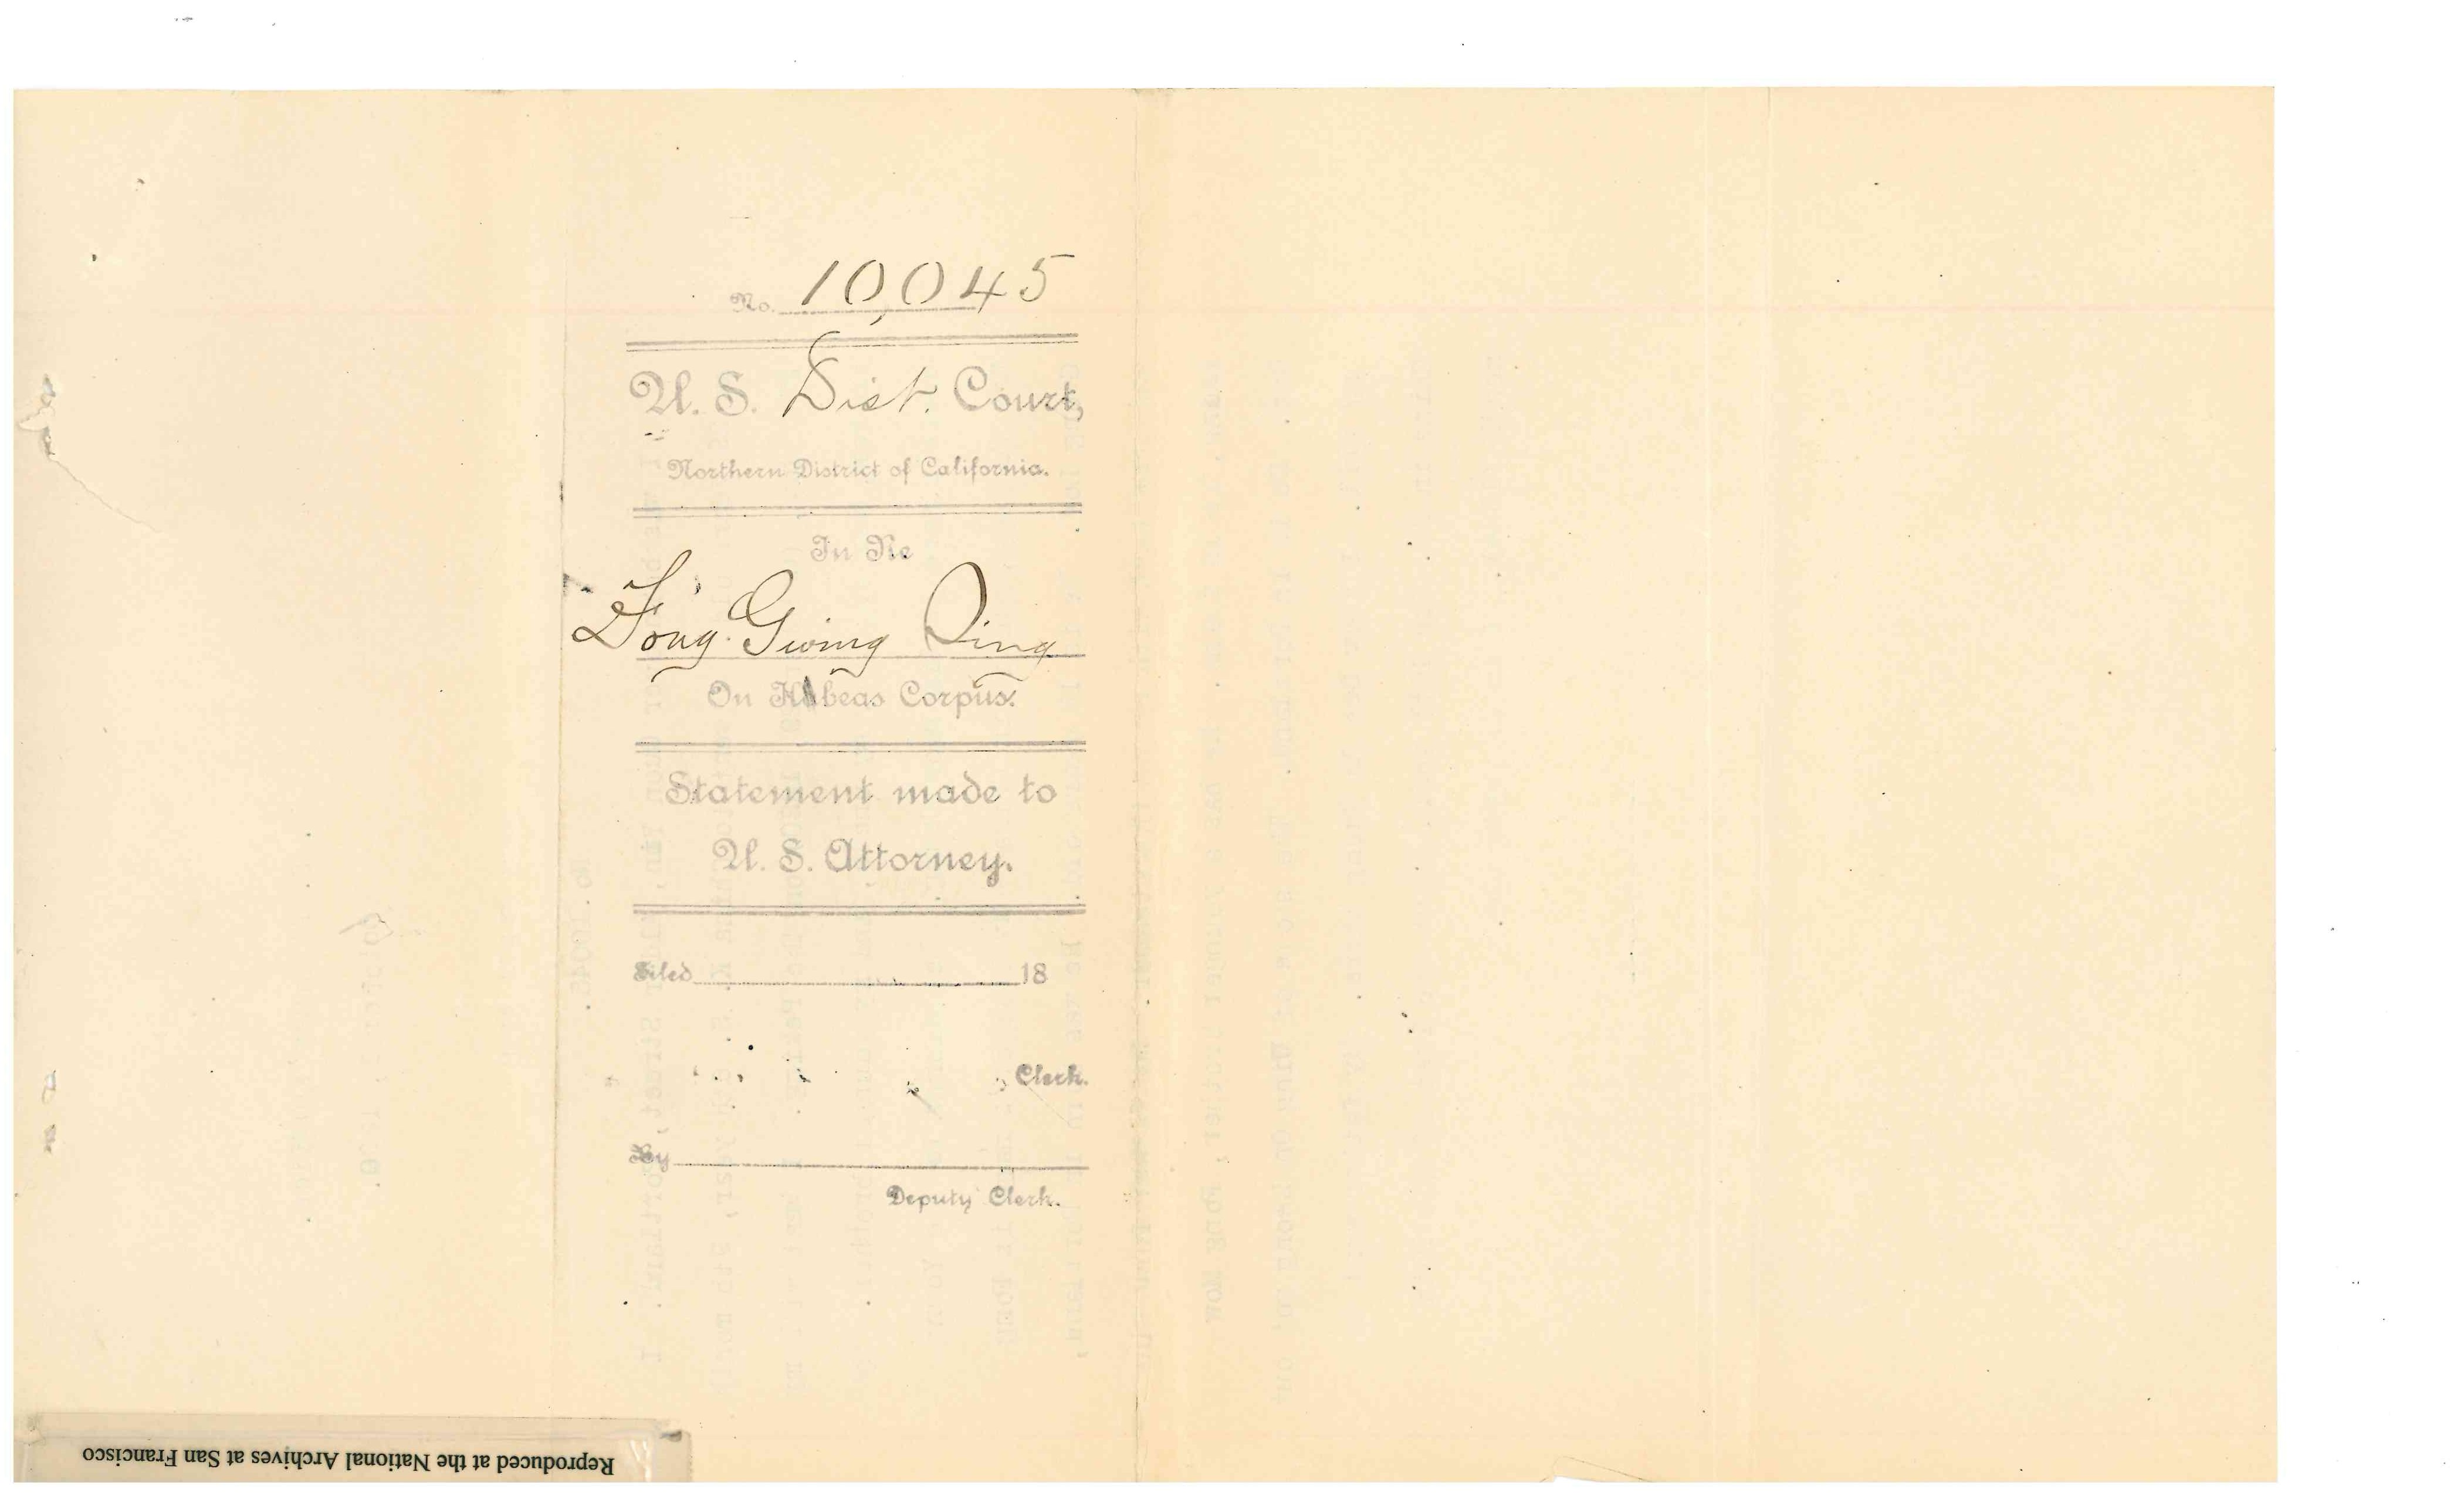 No. 10,045
U. S. Dist. Court,
Northern District of California.
In Re
Fong Gwing Qing
On Habeas Corpus.
Statement made to
U. S. Attorney.
Filed 18
Clerk.
By
Deputy Clerk.
Reproduced at the National Archives at San Francisco